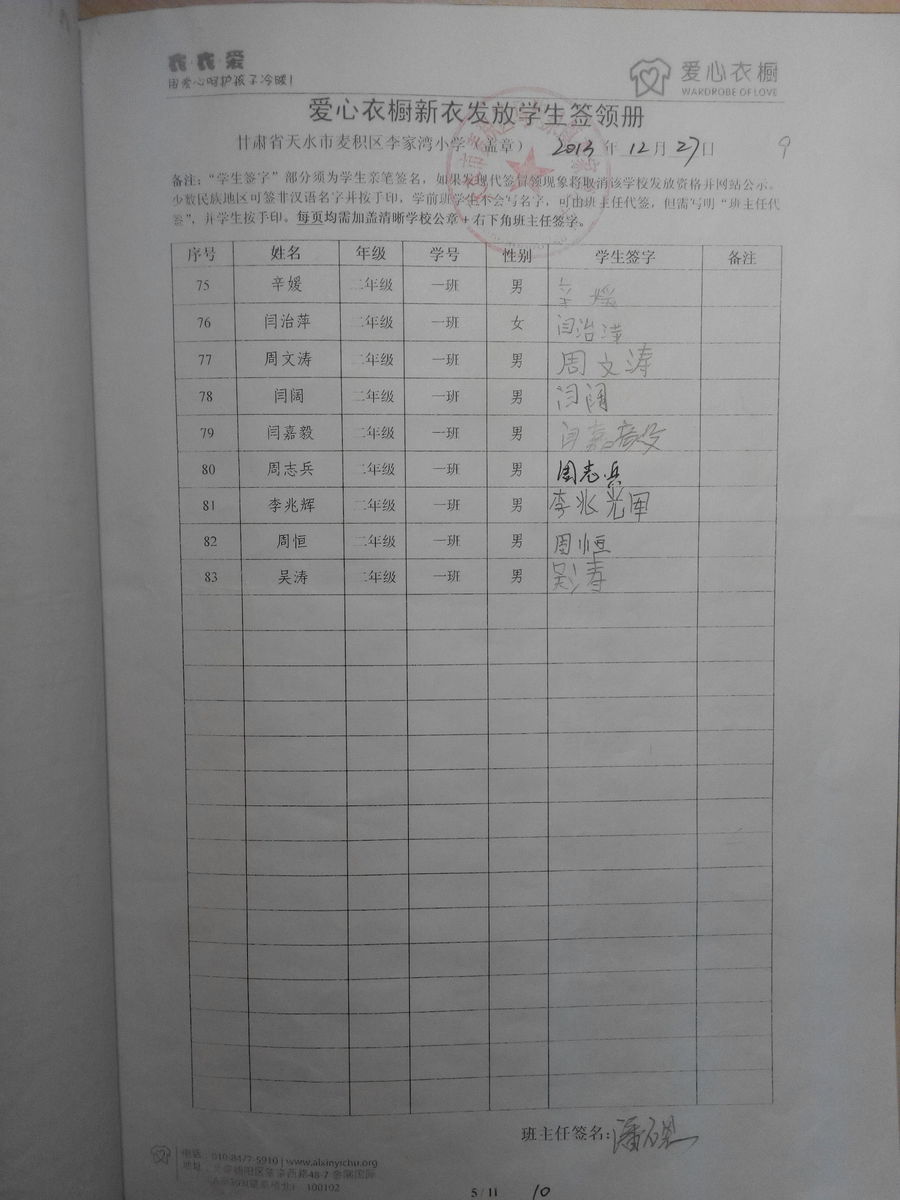 衣·衣·爱
用爱心呵护孩子冷暖!
爱心衣橱
WARDROBE OF LOVE
爱心衣橱新衣发放学生签领册
甘肃省天水市麦积区李家湾小学（盖章） 2013 年 12 月 27 日 9
备注：“学生签字”部分须为学生亲笔签名，如果发现代签冒领现象将取消该学校发放资格并网站公示。
少数民族地区可签非汉语名字并按手印，学前班学生不会写名字，可由班主任代签，但需写明“班主任代
签”，并学生按手印。每页均需加盖清晰学校公章＋右下角班主任签字。
序号 姓名 年级 学号 性别 学生签字 备注
75 辛媛 二年级 一班 男 辛媛
76 闫治萍 二年级 一班 女 闫治萍
77 周文涛 二年级 一班 男 周文涛
78 闫阔 二年级 一班 男 闫阔
79 闫嘉毅 二年级 一班 男 闫嘉毅
80 周志兵 二年级 一班 男 周志兵
81 李兆辉 二年级 一班 男 李兆辉
82 周恒 二年级 一班 男 周恒
83 吴涛 二年级 一班 男 吴涛
班主任签名:
电话：010-8477-5910 | www.aixinyichu.org
地址：
100102
5 / 11 10